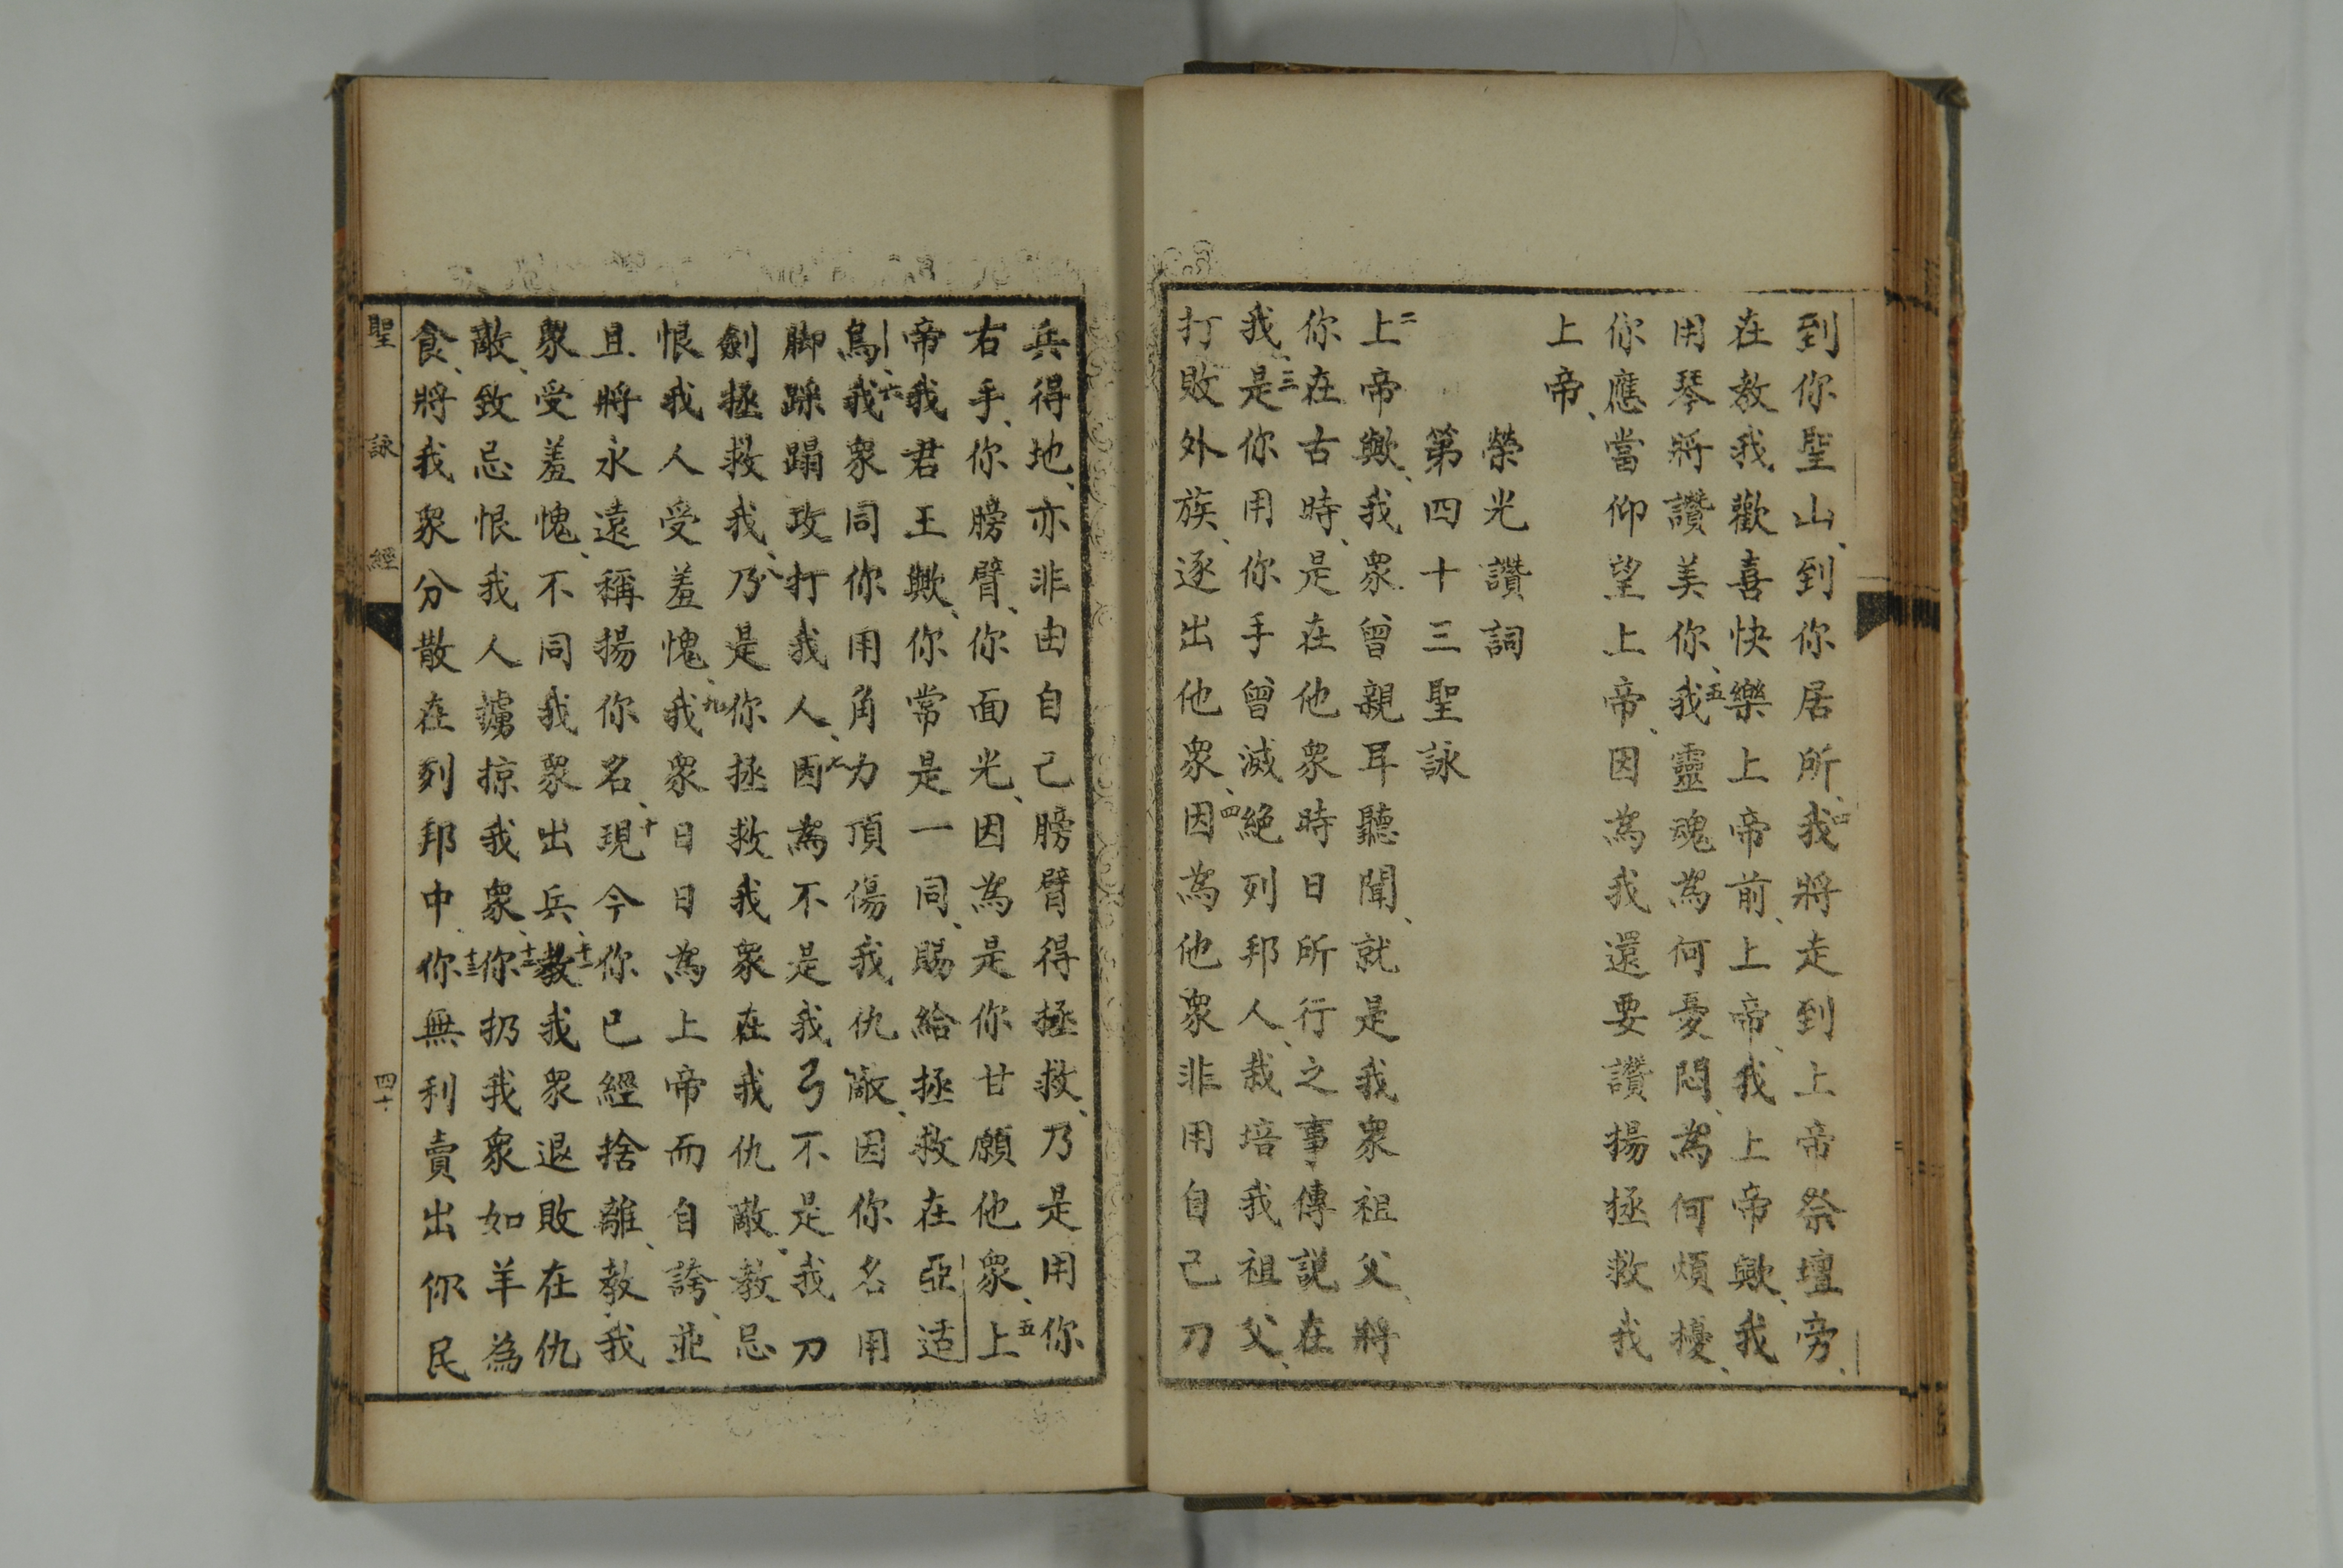 到你聖山、到你居所、四我將走到上帝祭壇旁、
在教我歡喜快樂上帝前、上帝、我上帝歟、我
用琴將讚美你、五我靈魂為何憂悶、為何煩擾、
你應當仰望上帝、因為我還要讚揚拯救我
上帝、
榮光讚詞
第四十三聖詠
二上帝歟、我眾曾親耳聽聞、就是我眾祖父、將
你在古時、是在他眾時日所行之事傳説在
我、三是你用你手曾滅絕列邦人、栽培我祖父、
打敗外族、逐出他眾、四因為他眾非用自己刀
兵得地、亦非由自己膀臂得拯救、乃是用你
右手、你膀臂、你面光、因為是你甘願他眾、五上
帝我君王歟、你常是一同、賜給拯救在亞适
烏、六我眾同你用角力頂傷我仇敵、因你名用
脚踩蹋攻打我人、七因為不是我弓不是我刀
劍拯救我、八乃是你拯救我眾在我仇敵、教忌
恨我人受羞愧、九我眾日日為上帝而自誇、並
且將永遠稱揚你名、十現今你已經捨離、教我
眾受羞愧、不同我眾出兵、十一教我眾退敗在仇
敵、致忌恨我人擄掠我眾、十二你扔我眾如羊為
食、將我眾分散在列邦中、十三你無利賣出你民
聖詠經
四十